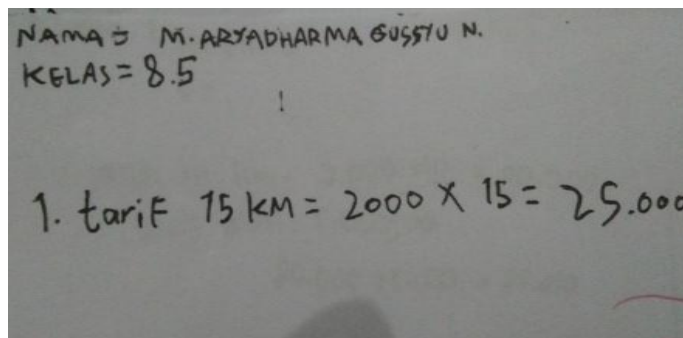 NAMA = M. ARYADHARMA GUSSYU N.
KELAS = 8.5
1. tarif 15 KM = 2000 X 15 = 25.000